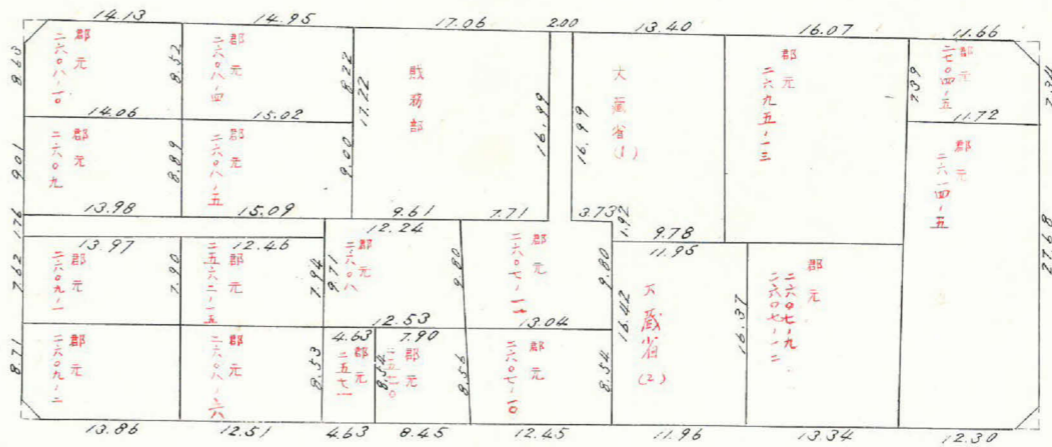 14.13
14.95
17.06
2.00
13.40
16.07
11.66
8.63
郡元
二六〇八-一〇
8.52
郡元
二六〇八-四
8.22
17.22
財務部
16.99
16.99
大蔵省
(1)
郡元
二六九五-一三
7.39
郡元
二七〇四-五
14.06
15.02
11.72
9.01
郡元
二六〇九
8.89
郡元
二六〇八-五
9.00
郡元
二六一四-五
27.68
13.98
15.09
9.61
7.71
3.73
1.92
9.78
1.76
13.97
12.46
12.24
11.95
7.62
郡元
二六〇九-一
7.90
郡元
二五六二-一五
7.94
9.71
郡元
二六〇八
9.80
郡元
9.80
16.42
大蔵省
(2)
16.37
郡元
二六〇七-九
二六〇七-一二
12.53
13.04
8.71
郡元
二六〇九-二
郡元
8.53
4.63
郡元
二五七一
8.54
7.90
郡元
8.56
郡元
二六〇七-一〇
8.54
13.86
12.51
4.63
8.45
12.45
11.96
13.34
12.30